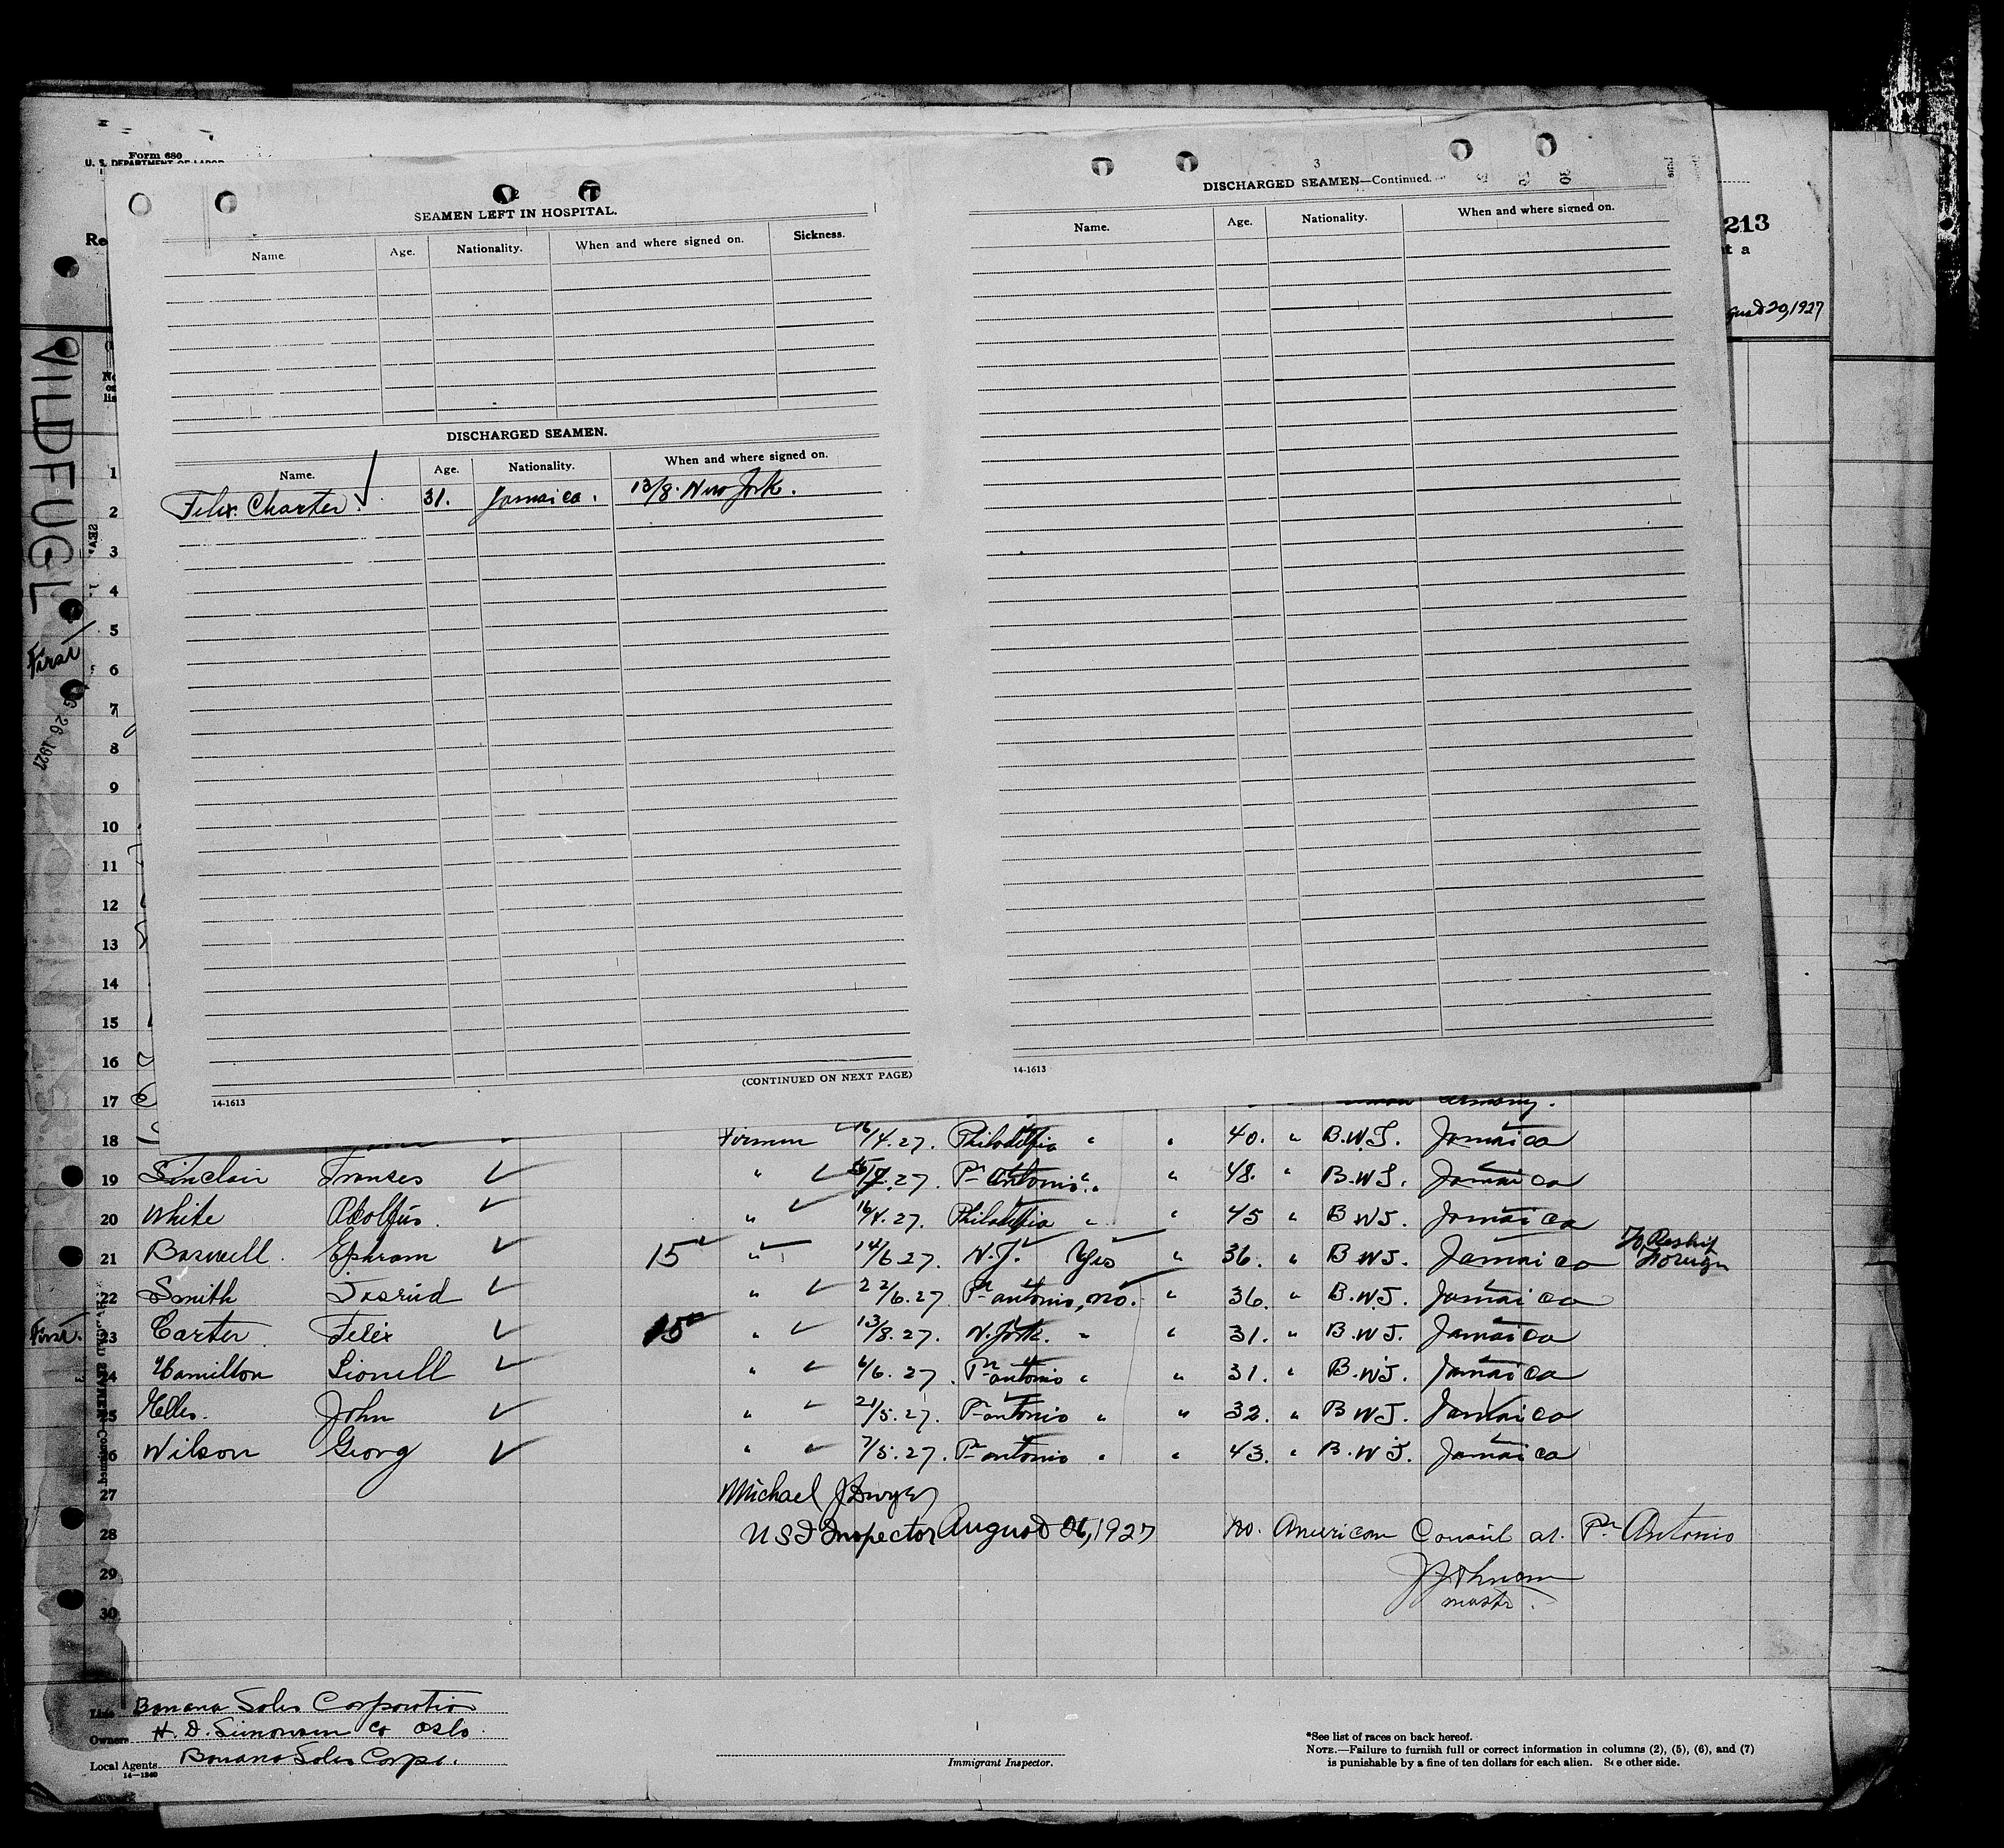 Form 680
U. S. DEPARTMENT OF LABOR
213
t a
20, 1927
VILDFUGL
First
26 1927
2
SEAMEN LEFT IN HOSPITAL.
Name. Age. Nationality. When and where signed on. Sickness.
DISCHARGED SEAMEN.
Name. Age. Nationality. When and where signed on.
Felix Charter 31. Jamaica. 13/8. New York.
(CONTINUED ON NEXT PAGE)
14-1613
3
DISCHARGED SEAMEN—Continued.
Name. Age. Nationality. When and where signed on.
14-1613
1
2
3
4
5
6
7
8
9
10
11
12
13
14
15
16
17
18 Firman 16/4.27. Philadelfia " " 40. " B.W.I. Jamaica
19 Sinclair Franses " 27. Pr Antonio " " 48. " B.W.I. Jamaica
20 White Adolfus. " 16/4.27. Philadelfia " " 45 " B.W.I. Jamaica
21 Baswell. Ephram 15 " 14/6.27. N.J. Yes " 36. " B.W.I. Jamaica
22 Smith " 22/6.27 Pr antonio, no. " 36. " B.W.I. Jamaica
First. 23 Carter Felix 15 " 13/8.27. N. York. " " 31. " B.W.I. Jamaica
24 Hamilton Lionell " 6/6.27. Pr antonio " " 31. " B.W.I. Jamaica
25 Ellis. John " 21/5.27. Pr antonio " " 32. " B.W.I. Jamaica
26 Wilson Georg " 7/5.27. Pr antonio " " 43. " B.W.I. Jamaica
27 Michael J Dwyer
28 U S I Inspector August 26, 1927 no. American Consul at. Pr Antonio
29
30 master.
Line Banana Sales Corporation
Owners H. D. Simonsen Co Oslo.
Local Agents Banana Sales Corpo.
14—1240
Immigrant Inspector.
*See list of races on back hereof.
NOTE.—Failure to furnish full or correct information in columns (2), (5), (6), and (7)
is punishable by a fine of ten dollars for each alien. See other side.